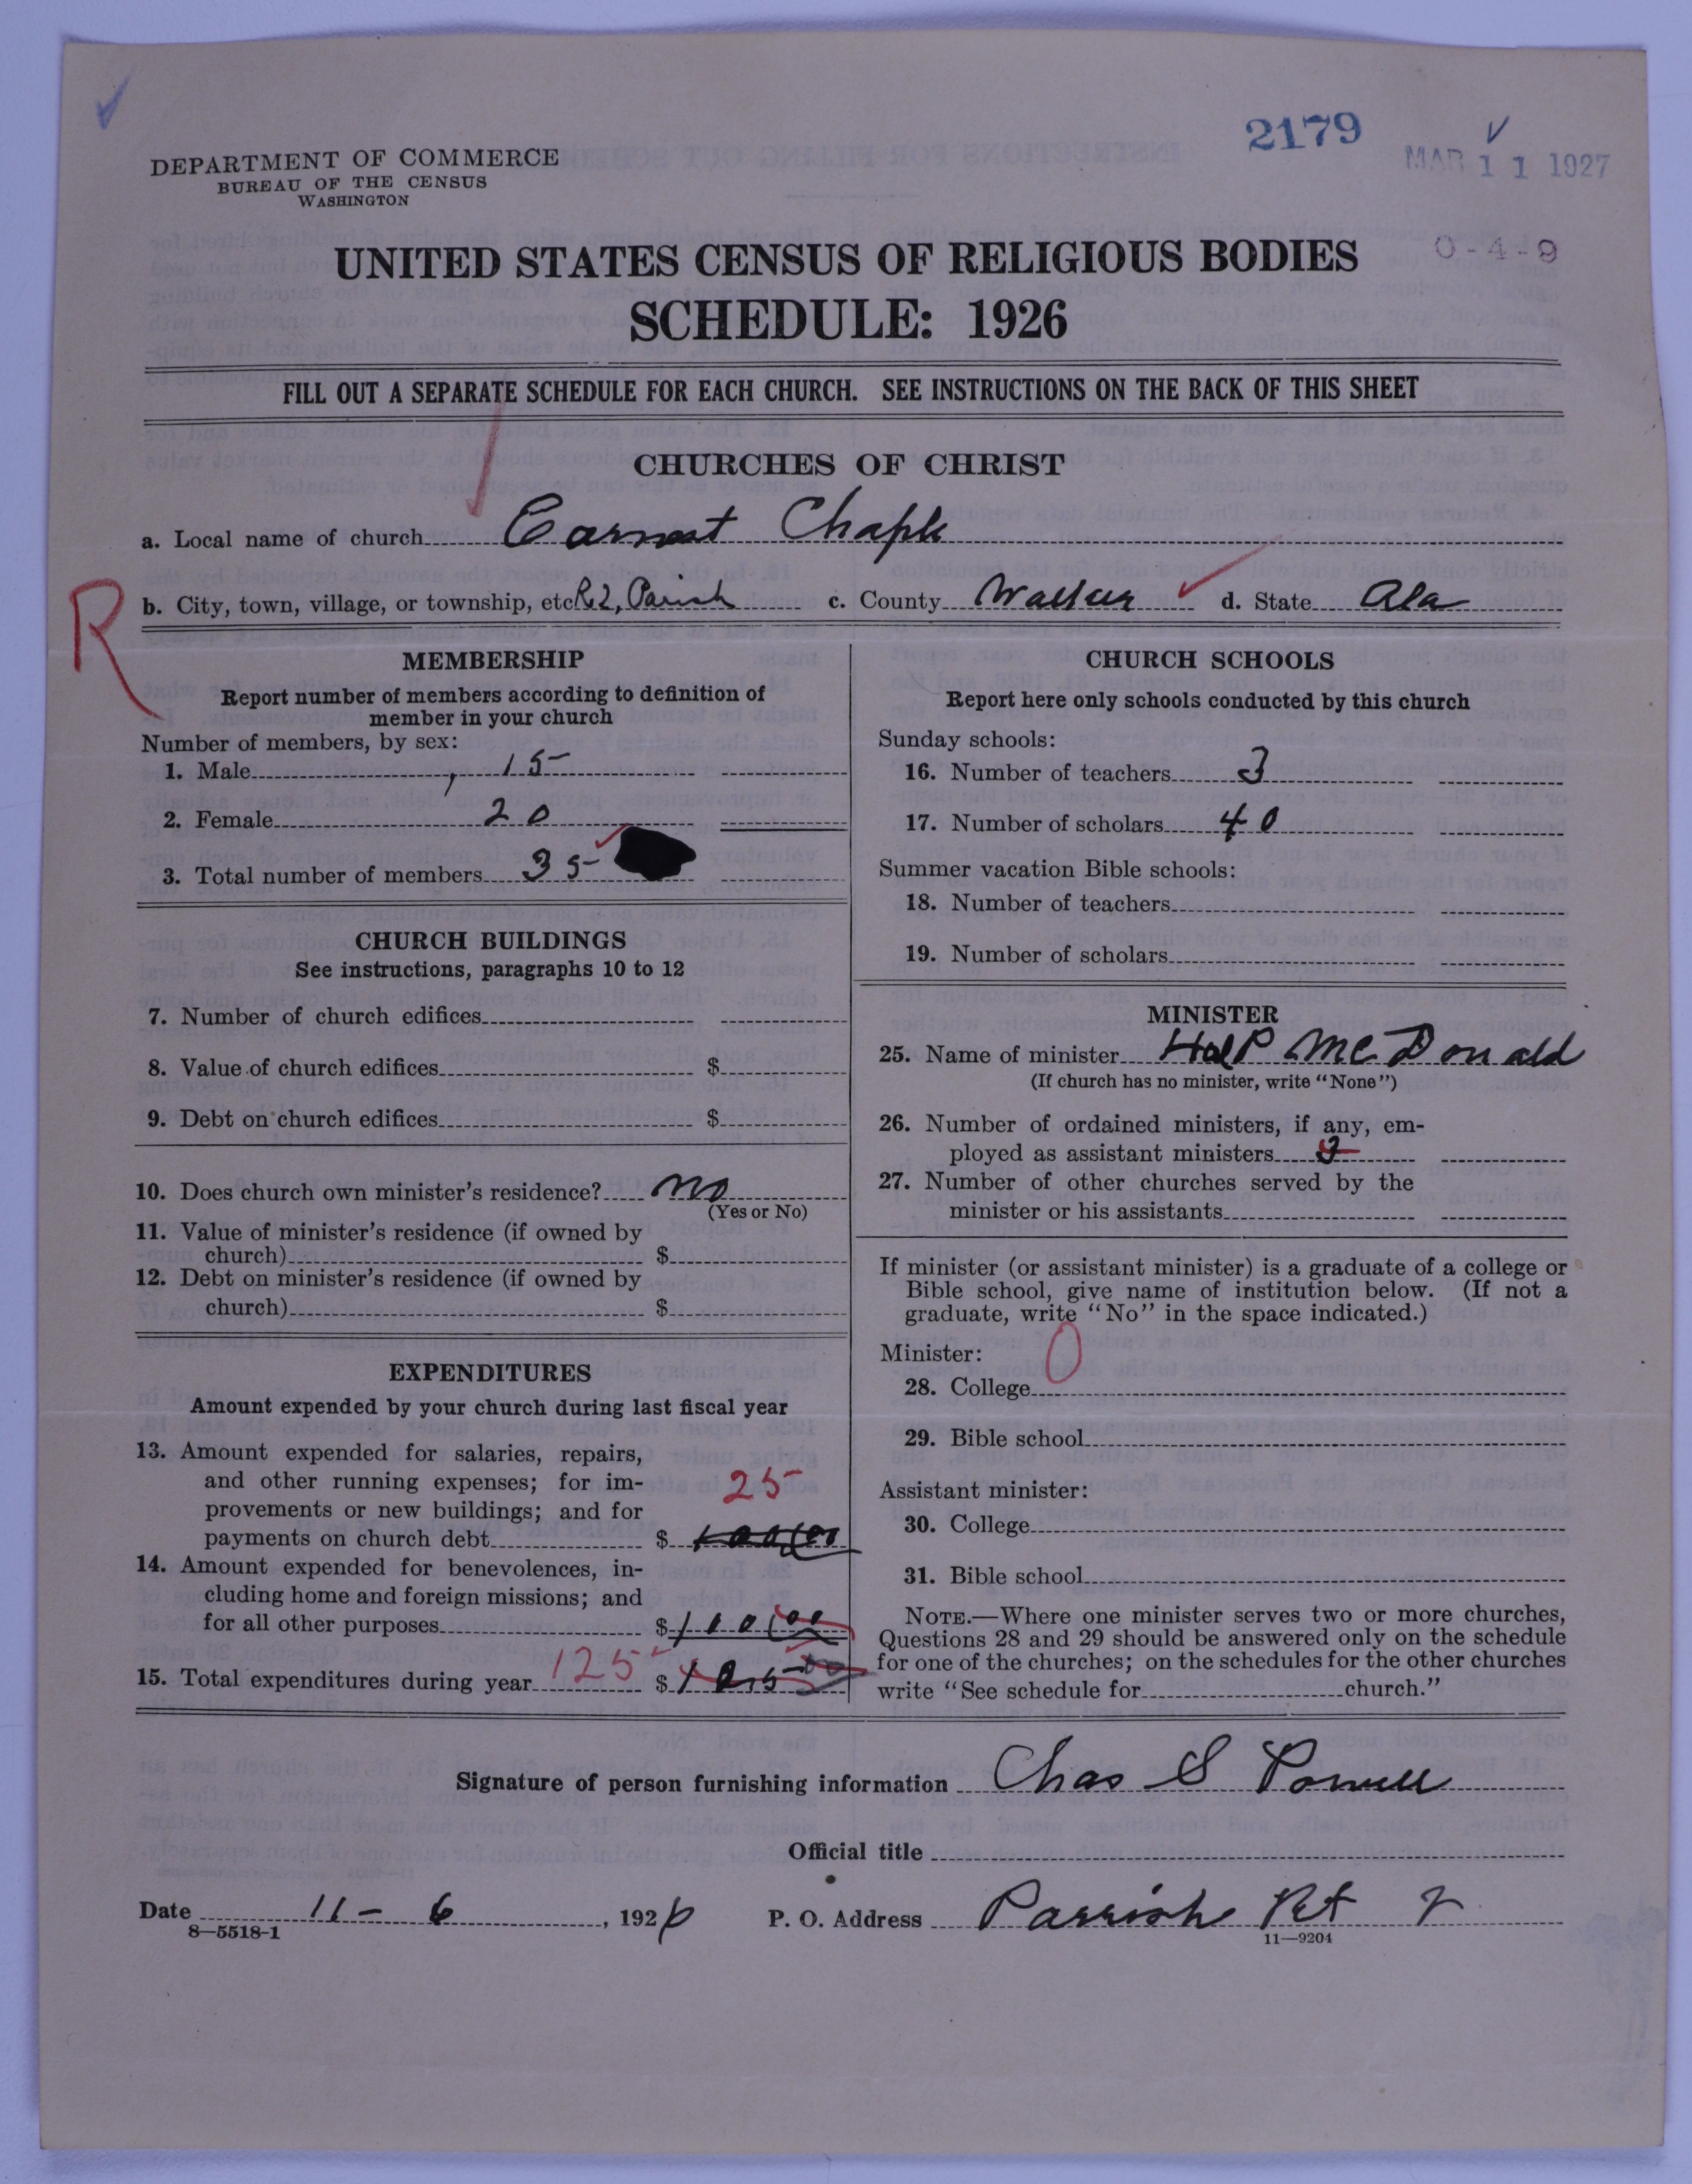 2179
MAR 11 1927
DEPARTMENT OF COMMERCE
BUREAU OF THE CENSUS
WASHINGTON
0-4-9
UNITED STATES CENSUS OF RELIGIOUS BODIES
SCHEDULE: 1926
FILL OUT A SEPARATE SCHEDULE FOR EACH CHURCH. SEE INSTRUCTIONS ON THE BACK OF THIS SHEET
CHURCHES OF CHRIST
a. Local name of church Earnest Chaple
R
b. City, town, village, or township, etc R2, Parish c. County Walker d. State Ala
MEMBERSHIP
Report number of members according to definition of
member in your church
Number of members, by sex:
1. Male 15
2. Female 20
3. Total number of members 35
CHURCH BUILDINGS
See instructions, paragraphs 10 to 12
7. Number of church edifices
8. Value of church edifices $
9. Debt on church edifices $
10. Does church own minister's residence? no
(Yes or No)
11. Value of minister's residence (if owned by
church) $
12. Debt on minister's residence (if owned by
church) $
EXPENDITURES
Amount expended by your church during last fiscal year
13. Amount expended for salaries, repairs,
and other running expenses; for im-
provements or new buildings; and for 25
payments on church debt $
14. Amount expended for benevolences, in-
cluding home and foreign missions; and
for all other purposes $ 100.00
15. Total expenditures during year 125 $
CHURCH SCHOOLS
Report here only schools conducted by this church
Sunday schools:
16. Number of teachers 3
17. Number of scholars 40
Summer vacation Bible schools:
18. Number of teachers
19. Number of scholars
MINISTER
25. Name of minister Hal P McDonald
(If church has no minister, write "None")
26. Number of ordained ministers, if any, em-
ployed as assistant ministers
27. Number of other churches served by the
minister or his assistants
If minister (or assistant minister) is a graduate of a college or
Bible school, give name of institution below. (If not a
graduate, write "No" in the space indicated.)
Minister: 0
28. College
29. Bible school
Assistant minister:
30. College
31. Bible school
NOTE.—Where one minister serves two or more churches,
Questions 28 and 29 should be answered only on the schedule
for one of the churches; on the schedules for the other churches
write "See schedule for church."
Signature of person furnishing information Chas S Powell
Official title
Date 11-6, 1926 P. O. Address Parrish Rt 2
8—5518-1
11—9204